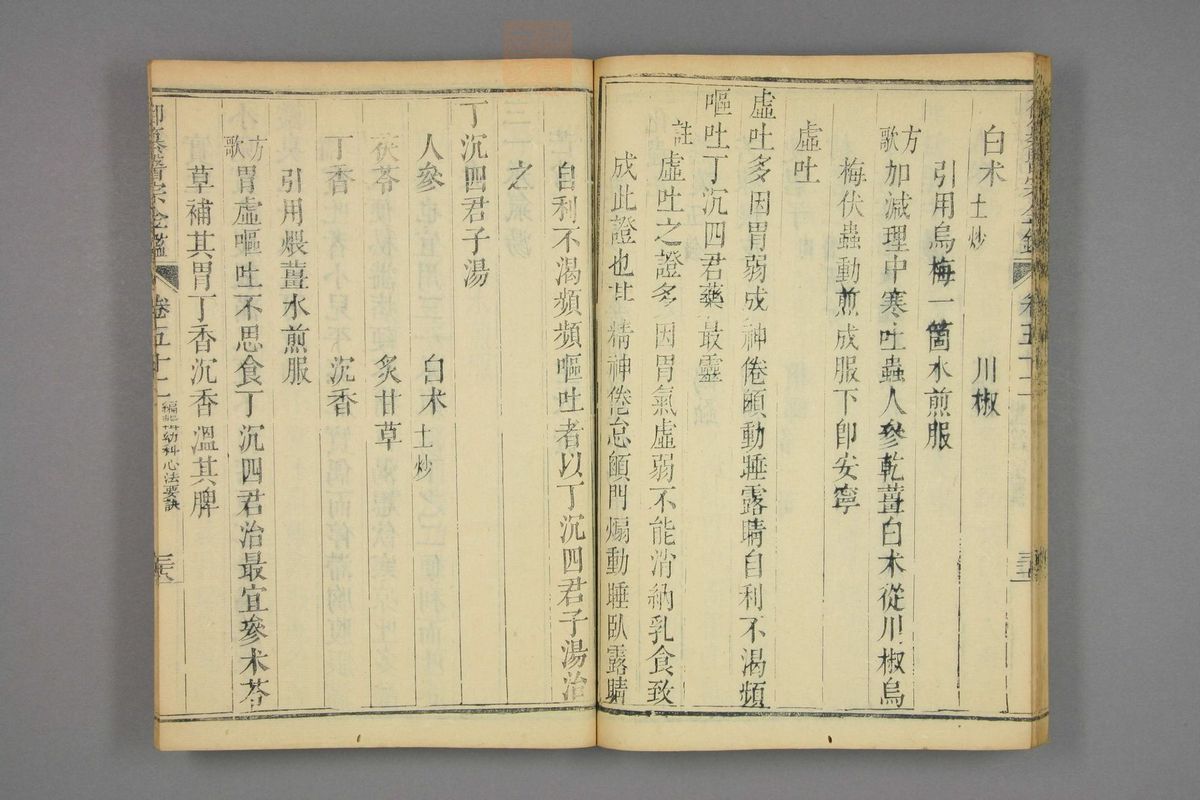 白朮土炒 川椒
引用烏梅一箇水煎服
方歌 加減理中寒吐蟲人參乾薑白朮從川椒烏
梅伏蟲動煎成服下卽安寧
虛吐
虛吐多因胃弱成神倦顖動睡露睛自利不渴頻
嘔吐丁沉四君藥最靈
註 虛吐之證多因胃氣虛弱不能消納乳食致
成此證也其精神倦怠顖門煽動睡臥露睛
自利不渴頻頻嘔吐者以丁沉四君子湯治
之
丁沉四君子湯
人參 白朮土炒
茯苓 炙甘草
丁香 沉香
引用煨薑水煎服
方歌 胃虛嘔吐不思食丁沉四君治最宜參朮苓
草補其胃丁香沉香溫其脾
御纂醫宗金鑑 卷五十二 編輯幼科心法要訣